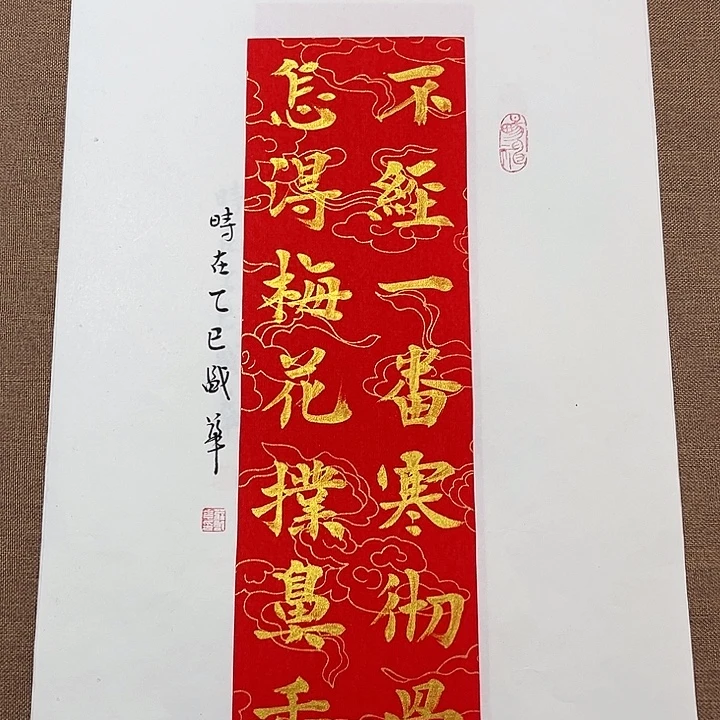 不經一番寒彻骨
怎得梅花撲鼻香
時在乙巳華